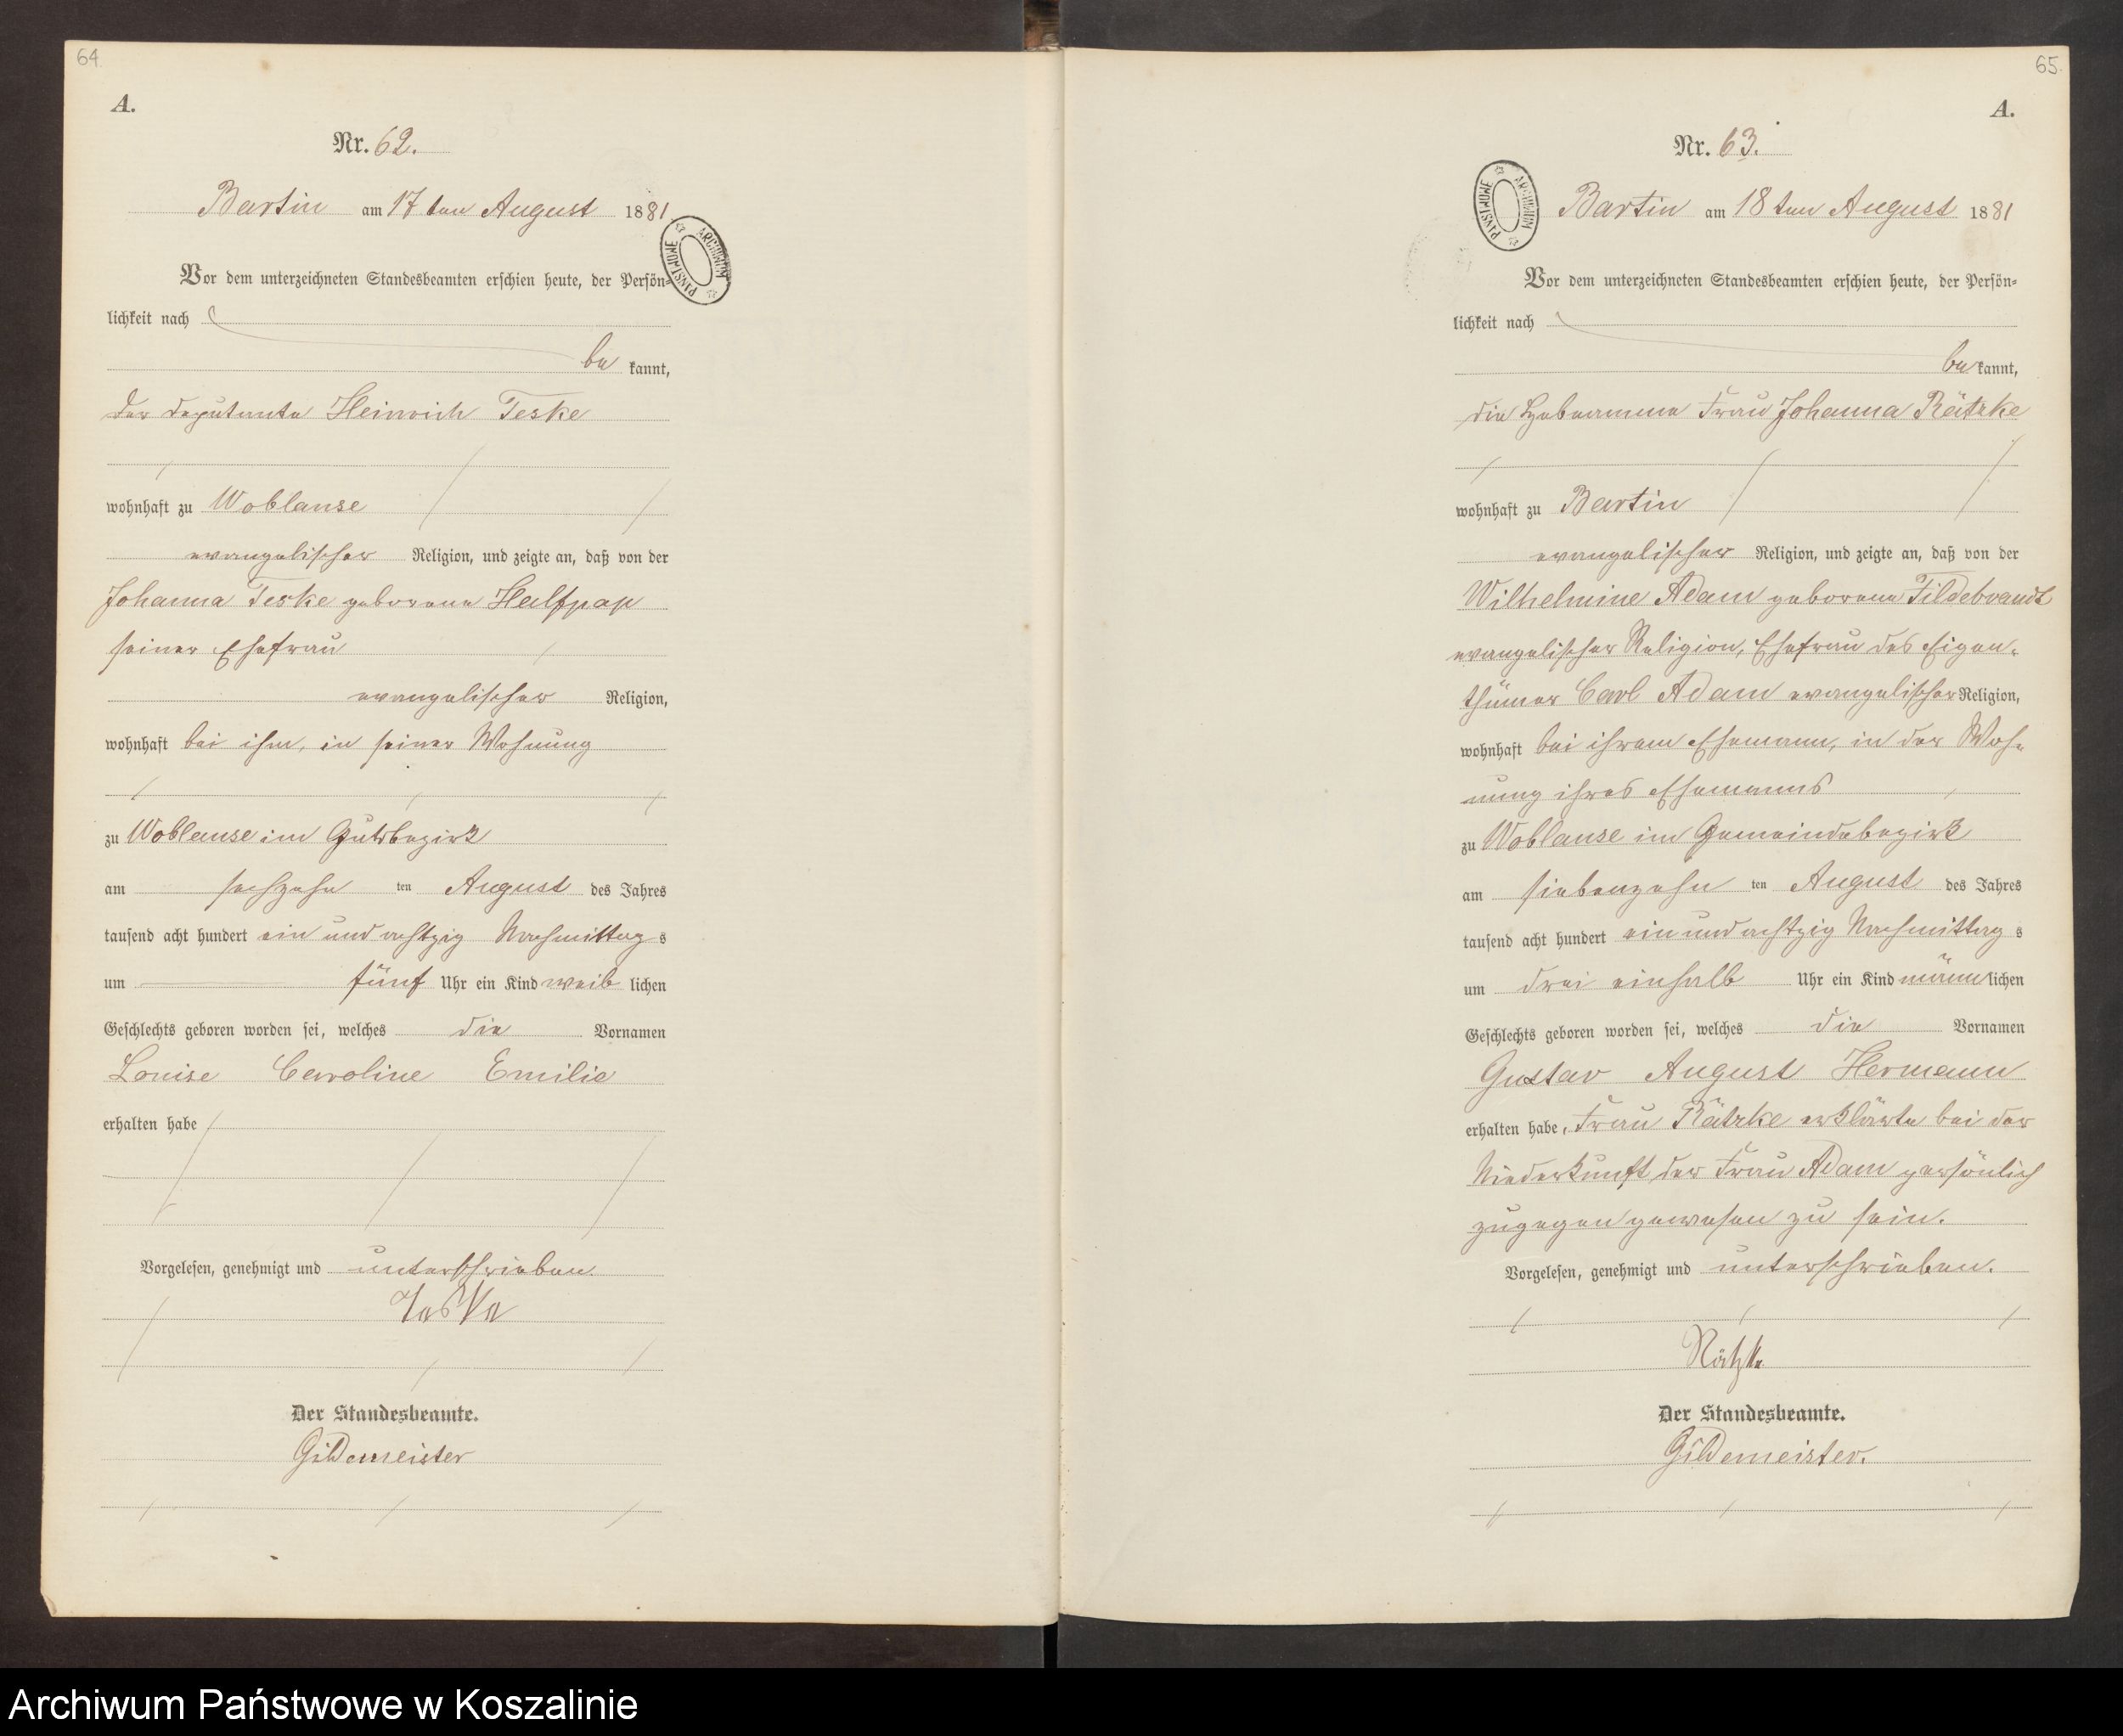 64.
A.
Nr. 62.
Bartin am 17 ten August 1881
ARCHIWUM PAŃSTWOWE
Vor dem unterzeichneten Standesbeamten erschien heute, der Persön-
lichkeit nach
be kannt,
der Deputante Heinrich Teske
wohnhaft zu Woblanse
evangelischer Religion, und zeigte an, daß von der
Johanna Teske geborene Halfpap
seiner Ehefrau
evangelischer Religion,
wohnhaft bei ihm, in seiner Wohnung
zu Woblanse im Gutsbezirk
am sechzehn ten August des Jahres
tausend acht hundert ein und achtzig Nachmittag s
um fünf Uhr ein Kind weib lichen
Geschlechts geboren worden sei, welches die Vornamen
Louise Caroline Emilie
erhalten habe
Vorgelesen, genehmigt und unterschrieben.
Teske
Der Standesbeamte.
Gildemeister
65.
A.
Nr. 63.
ARCHIWUM PAŃSTWOWE
Bartin am 18 ten August 1881
Vor dem unterzeichneten Standesbeamten erschien heute, der Persön-
lichkeit nach
be kannt,
die Hebeamme Frau Johanna Rätzke
wohnhaft zu Bartin
evangelischer Religion, und zeigte an, daß von der
Wilhelmine Adam geborene Fildebrandt
evangelischer Religion, Ehefrau des Eigen-
thümer Carl Adam evangelischer Religion,
wohnhaft bei ihrem Ehemann, in der Woh-
nung ihres Ehemanns
zu Woblanse im Gemeindebezirk
am siebenzehn ten August des Jahres
tausend acht hundert ein und achtzig Nachmittag s
um drei einhalb Uhr ein Kind männ lichen
Geschlechts geboren worden sei, welches die Vornamen
Gustav August Hermann
erhalten habe, Frau Rätzke erklärte bei der
Niederkunft der Frau Adam persönlich
zugegen gewesen zu sein.
Vorgelesen, genehmigt und unterschrieben.
Rätzke
Der Standesbeamte.
Gildemeister.
Archiwum Państwowe w Koszalinie